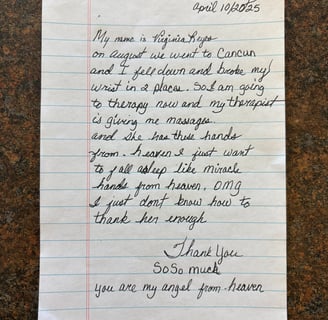 April 10/2025
My name is Virginia Reyes
on august we went to Cancun
and I fell down and broke my
wrist in 2 places. So I am going
to therapy now and my therapist
is giving me massages.
and she has these hands
from heaven I just want
to fall asleep like miracle
hands from heaven. OMG
I just don't know how to
thank her enough
Thank You
SoSo much
you are my angel from heaven